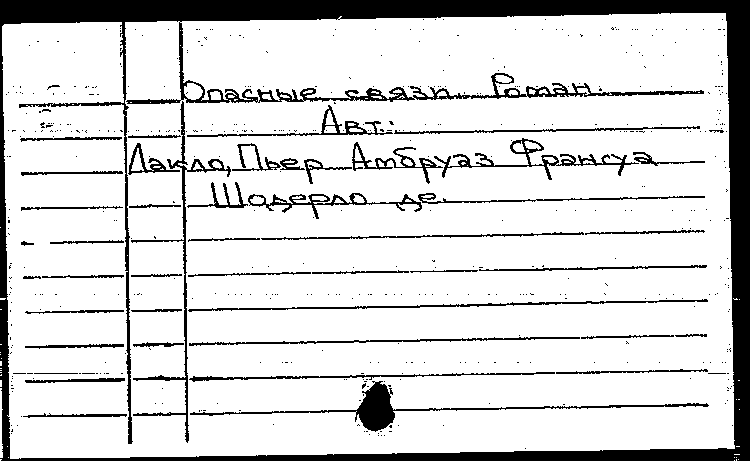 Опасные связи. Роман.
Авт.:
Лакло, Пьер Амбруаз Франсуа
Шодерло де.